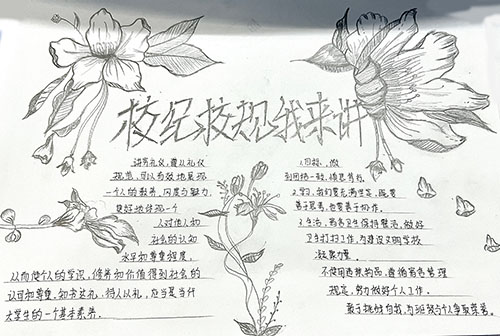 校纪校规我来讲
讲究礼仪,遵从礼仪
规范,可以有效地展现
一个人的教养、风度与魅力
更好地体现一个
人对他人和
社会的认知
水平和尊重程度,
从而使个人的学识、修养和价值得到社会的
认可和尊重,知书达礼,待人以礼,应当是当代
大学生的一个基本素养。
1.思想,做
到思想一致,
2.学习,我们要充满
善于思考,也要善于协作。
3.生活,离寝卫生保持整洁,做好
卫生打扫工作,为建设文明学校
凝聚力量
不使用违禁物品,遵循寝室管理
规定,努力做好个人工作,
敢于挑战自我,为班级与个人争取荣誉。